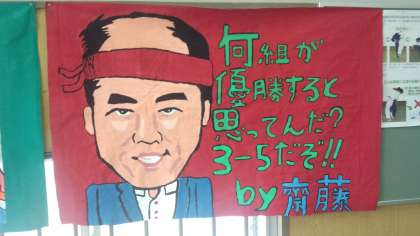 何組が
優勝すると
思ってんだ?
3-5だぞ!!
by 齋藤